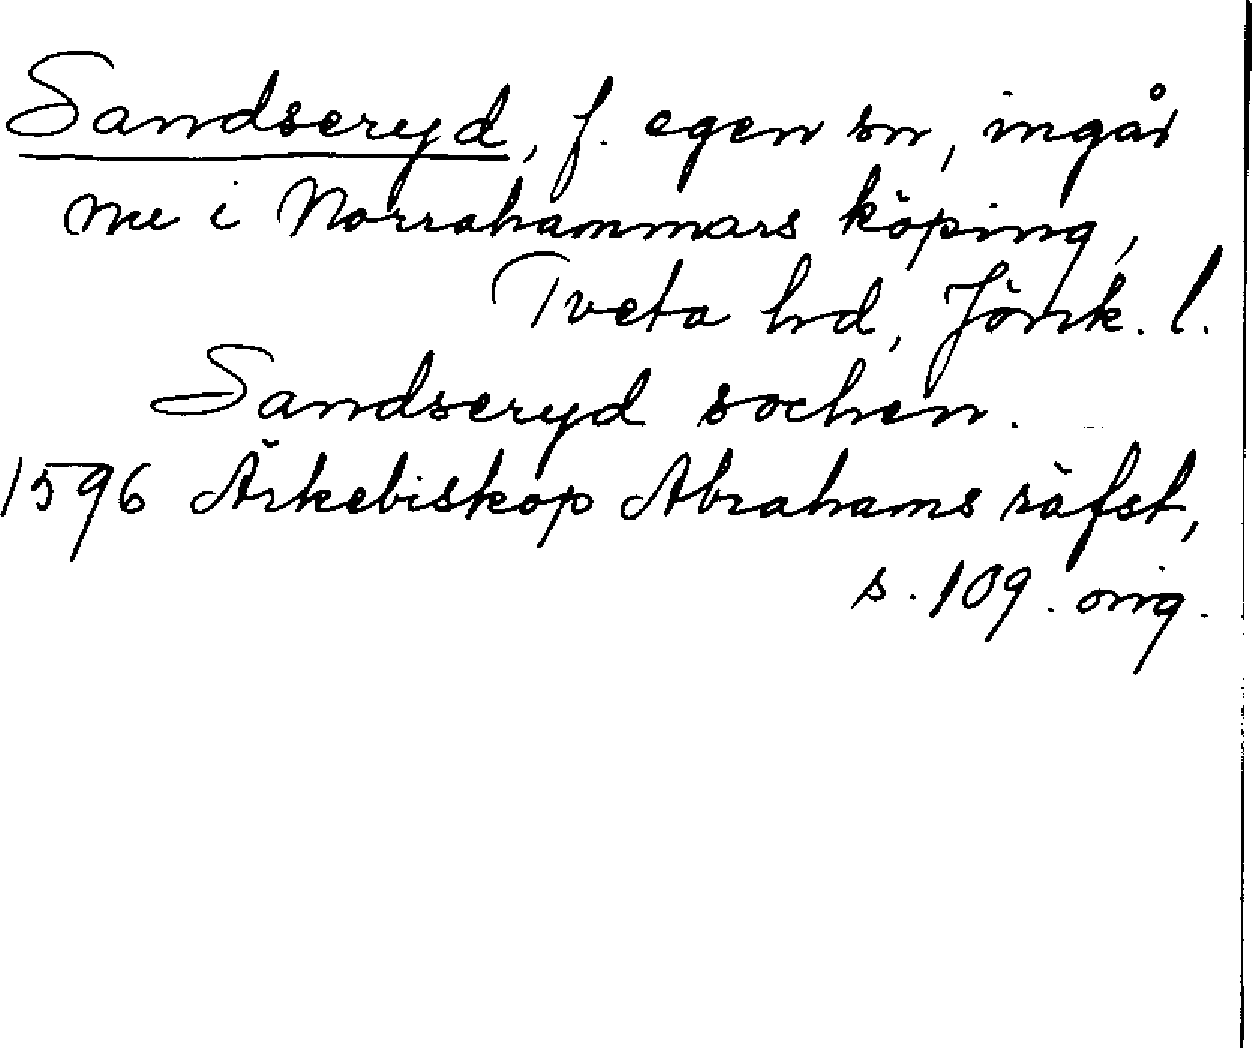 Sandseryd, f. egen sn, ingår
nu i Norrahammars köping,
Tveta hd, Jönk. l.
Sandseryd sochen.
1596 Ärkebiskop Abrahams räfst,
s. 109. orig.